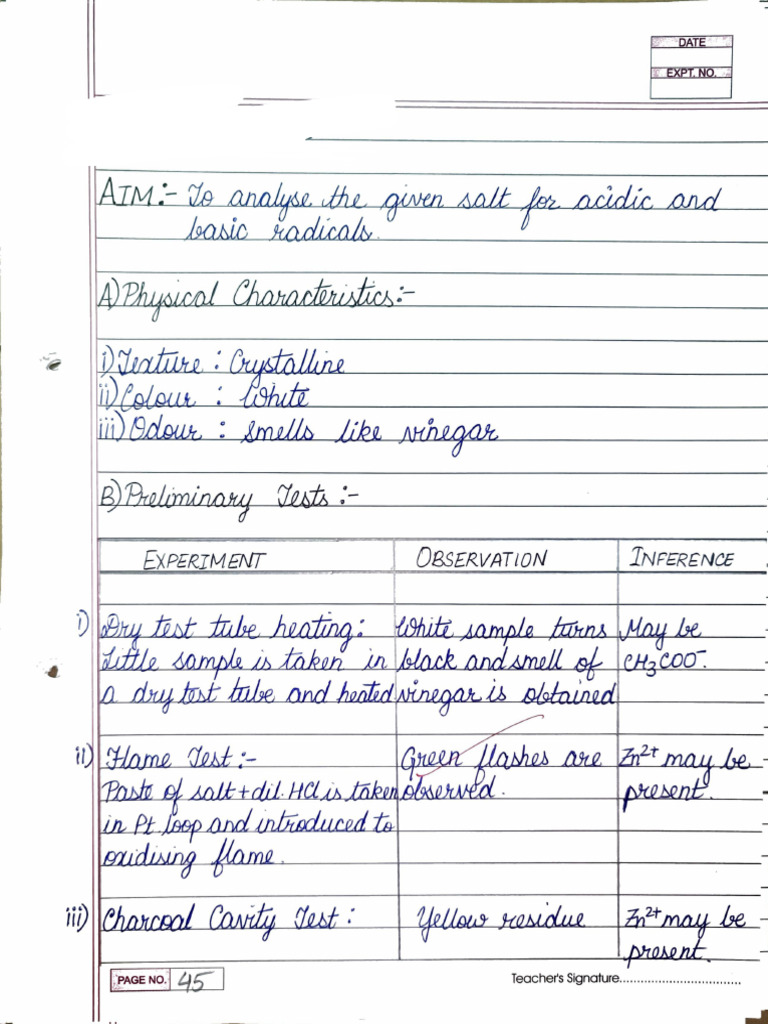 DATE
EXPT. NO.
AIM:- To analyse the given salt for acidic and
basic radicals.
A) Physical Characteristics:-
i) Texture : Crystalline
ii) Colour : White
iii) Odour : Smells like vinegar
B) Preliminary Tests :-
EXPERIMENT OBSERVATION INFERENCE
i) Dry test tube heating: White sample turns May be
Little sample is taken in black and smell of CH3COO-.
a dry test tube and heated vinegar is obtained
ii) Flame Test:- Green flashes are Zn2+ may be
Paste of salt+dil. HCl is taken observed. present.
in Pt loop and introduced to
oxidising flame.
iii) Charcoal Cavity Test: Yellow residue Zn2+ may be
present.
PAGE NO. 45
Teacher's Signature..............................